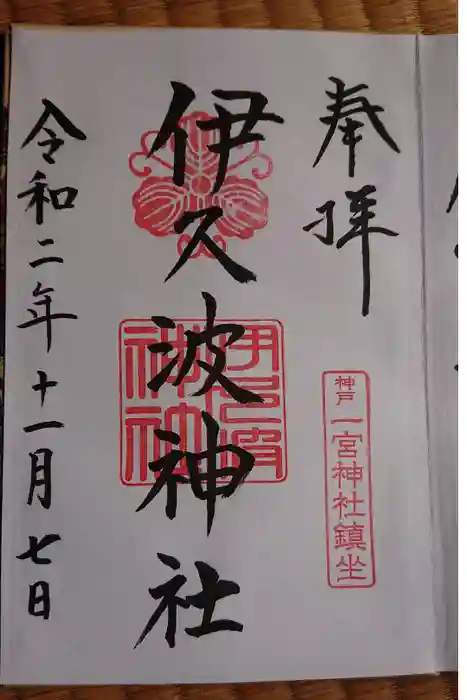 奉拝
神戸 一宮神社鎮坐
伊久波神社
令和二年十一月七日